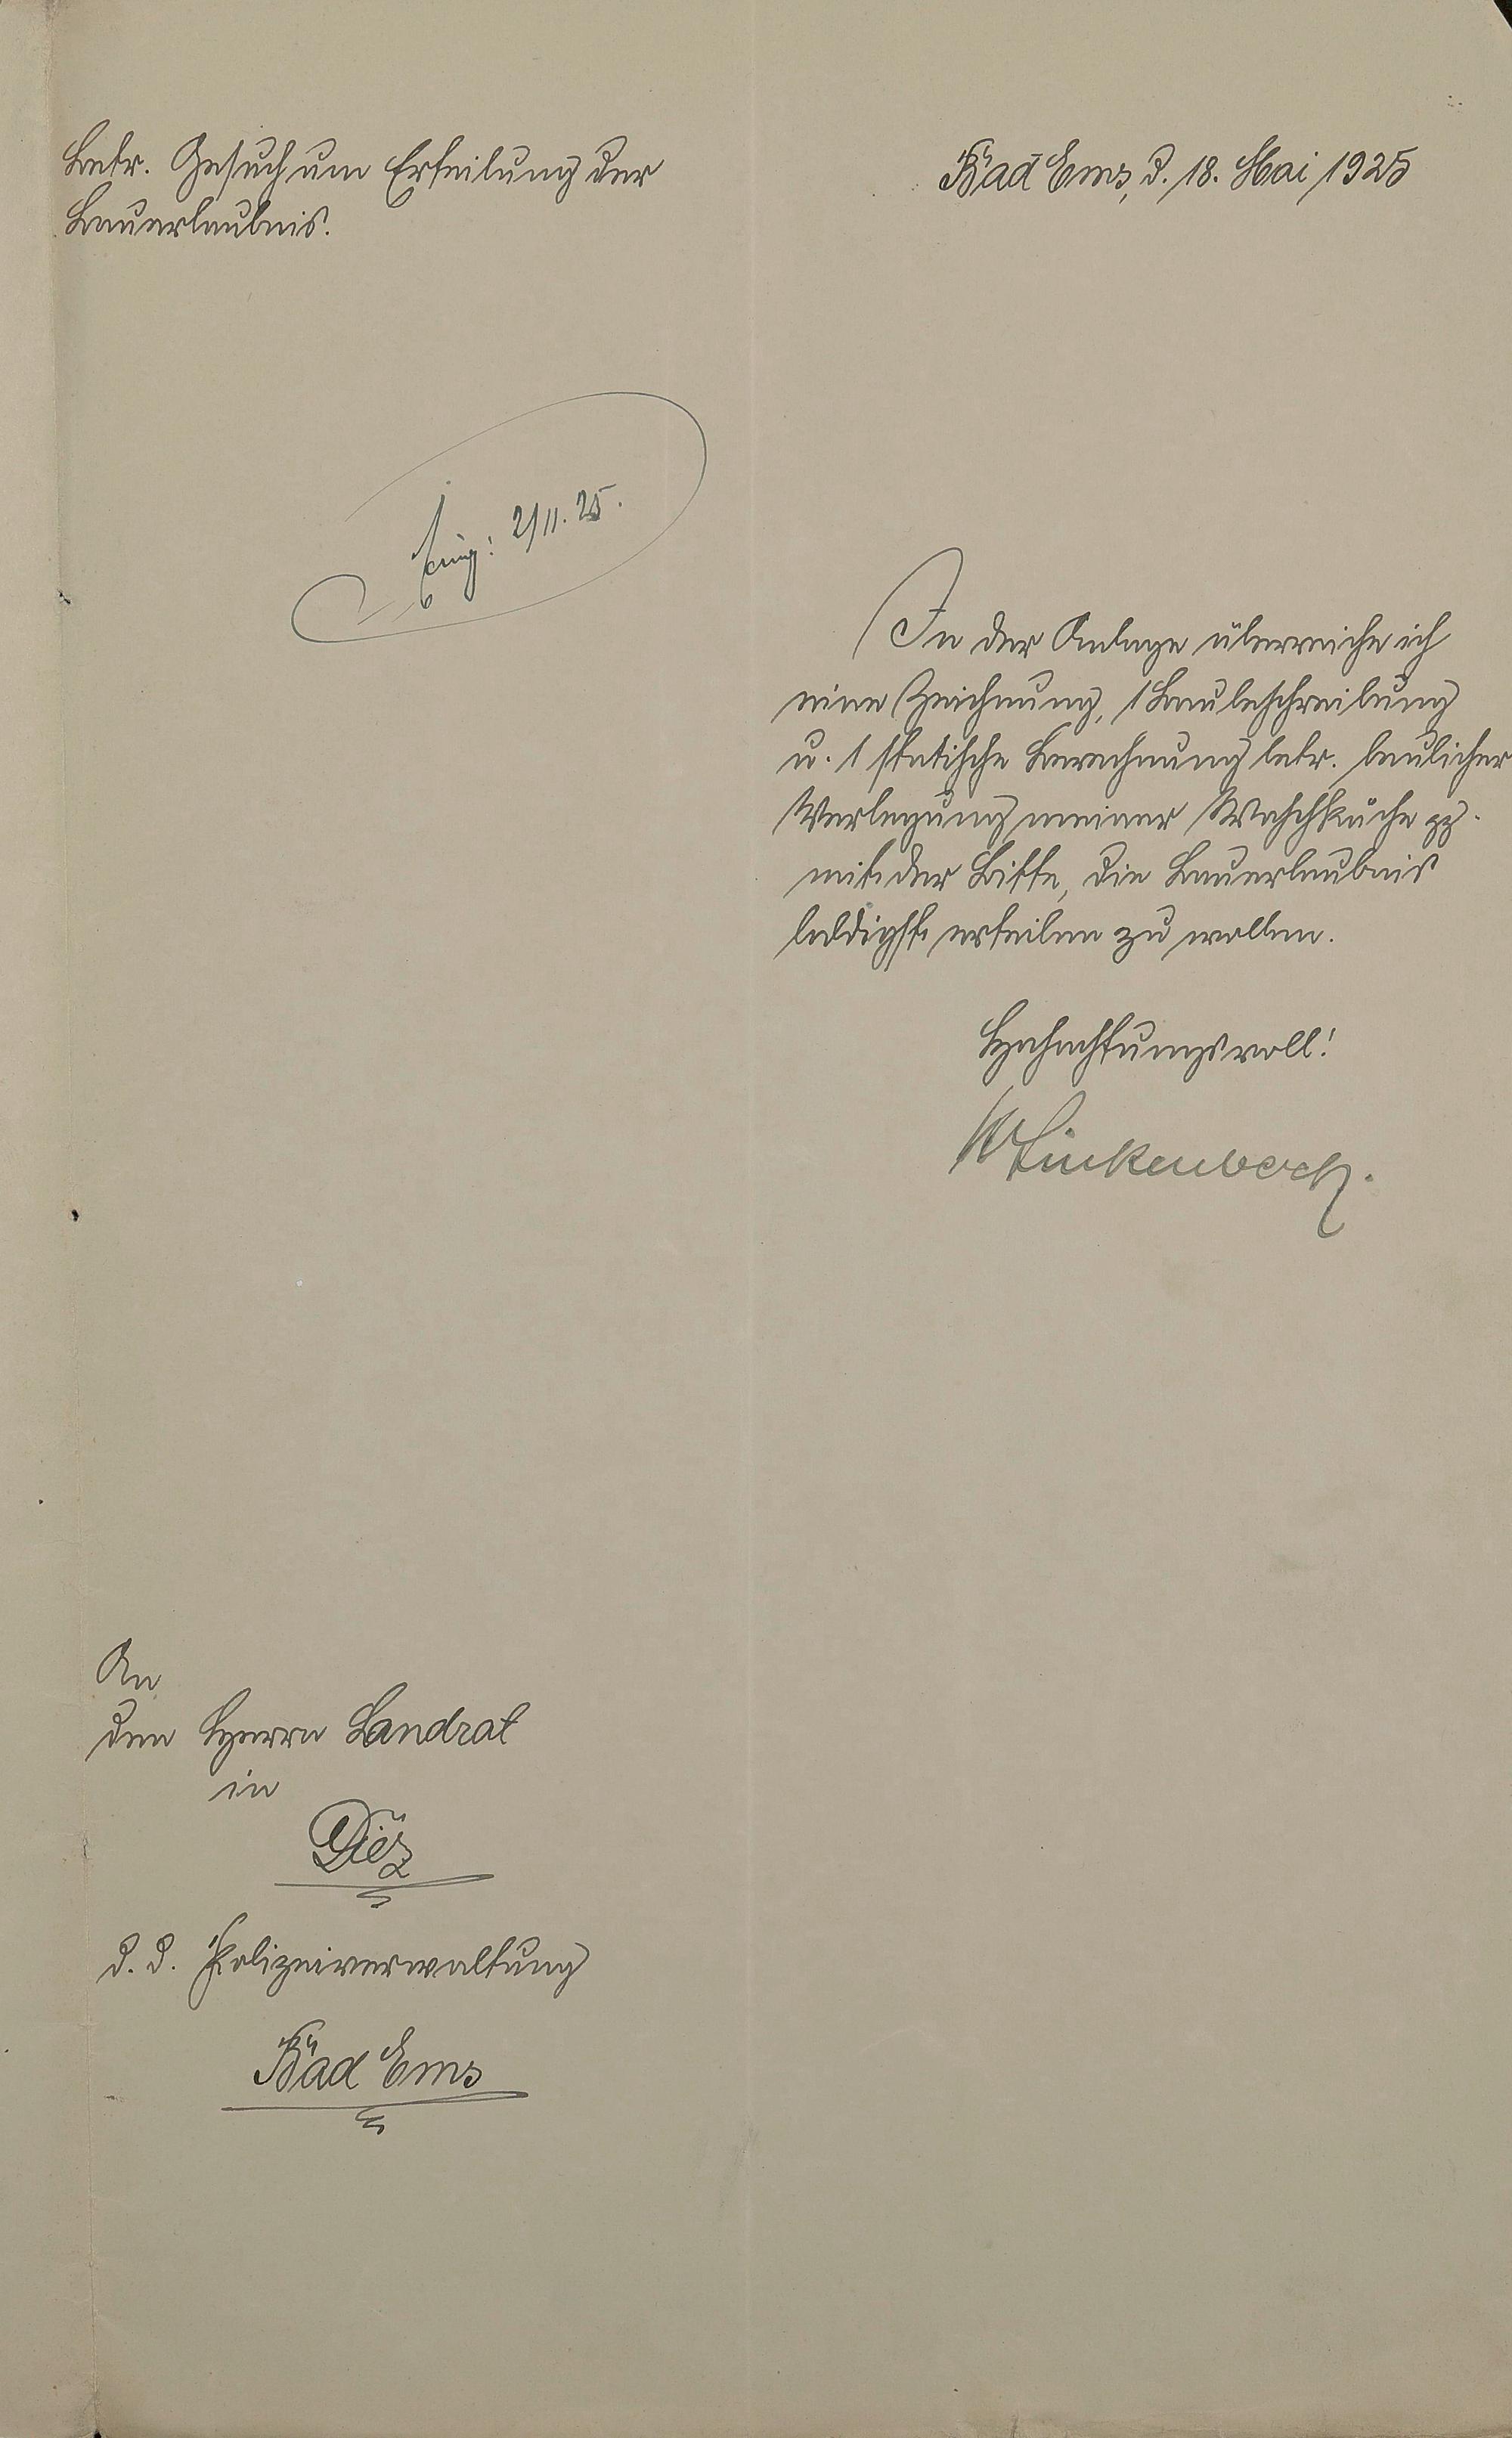 Betr. Gesuch um Erteilung der
Bauerlaubnis.
Bad Ems, d. 18. Mai 1925
2/11. 25.
In der Anlage überreiche ich
eine Zeichnung, 1 Baubeschreibung
u. 1 statische Berechnung betr. baulicher
Verlegung meiner Waschküche pp.
mit der Bitte, die Bauerlaubnis
baldigst erteilen zu wollen.
Hochachtungsvoll!
W Linkenbach.
An
den Herrn Landrat
in
Diez
d. d. Polizeiverwaltung
Bad Ems